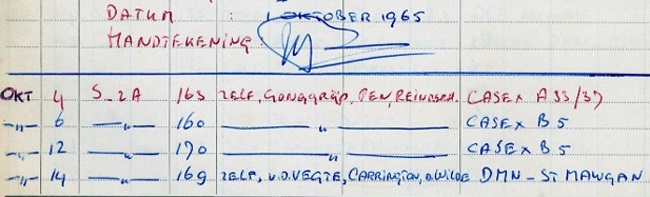 DATUM : 1 OKTOBER 1965
HANDTEKENING:
OKT 4 S-2A 163 ZELF, GONGGRIJP, PEN, REINDERH. CASEX A 33/37
-„- 6 -„- 160 -„- CASEX B 5
-„- 12 -„- 170 -„- CASEX B 5
-„- 14 -„- 169 ZELF, V.D.VEGTE, CARRINGTON, D.WILDE DMN - ST MAWGAN